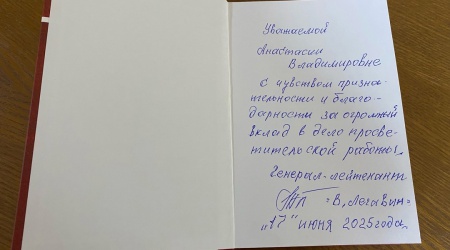 Уважаемой
Анастасии
Владимировне
с чувством призна-
тельности и благо-
дарности за огромный
вклад в дело просве-
тительской работы.
Генерал-лейтенант
"17" июня 2025 года.